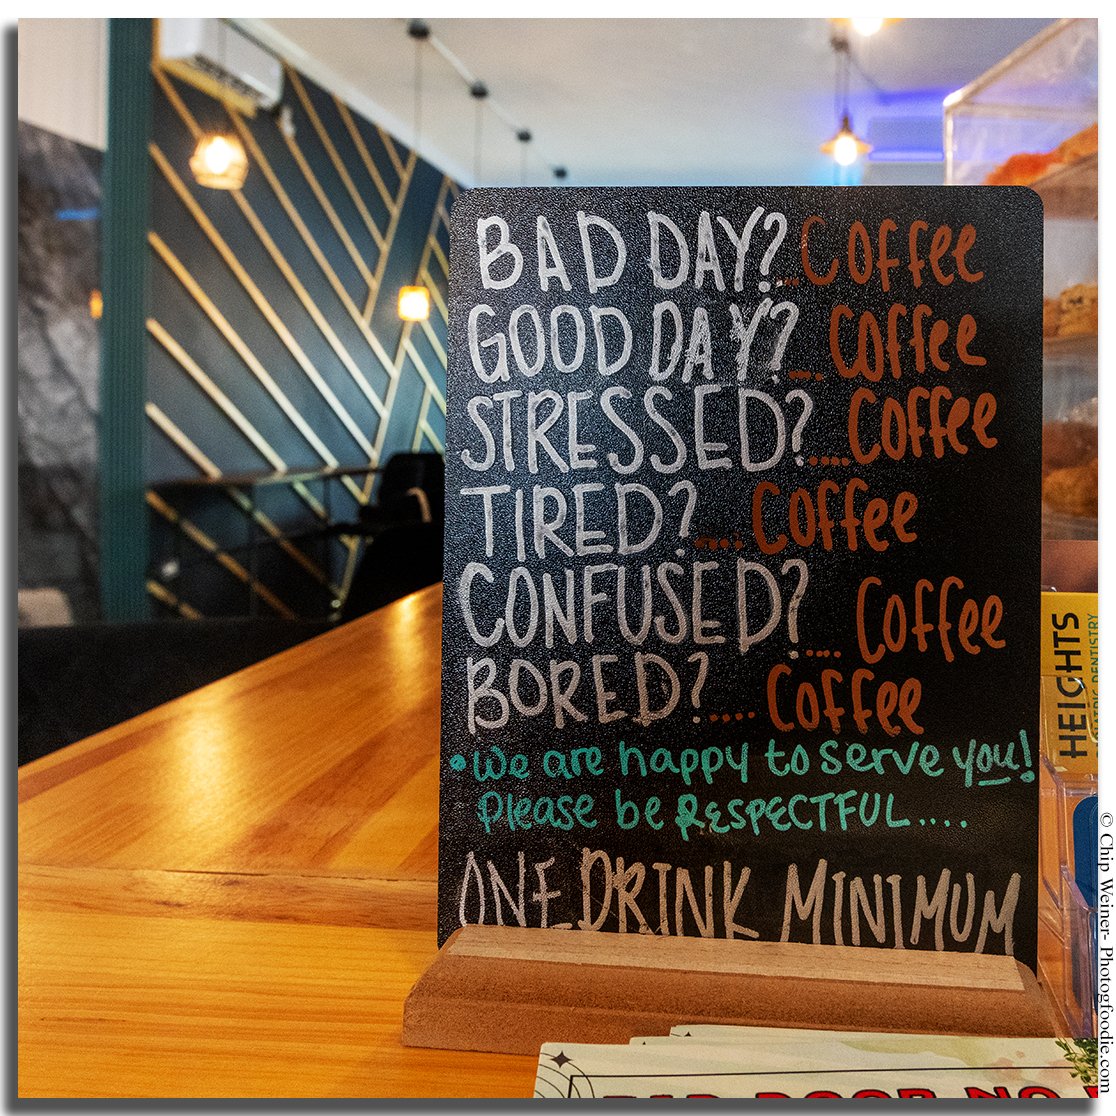 BAD DAY?...Coffee
GOOD DAY?...Coffee
STRESSED?....Coffee
TIRED?....Coffee
CONFUSED?....Coffee
BORED?....Coffee
•We are happy to serve you!
Please be RESPECTFUL....
ONE DRINK MINIMUM
HEIGHTS
DENTISTRY
© Chip Weiner- Photogfoodie.com